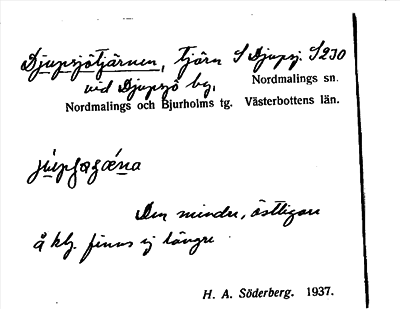 Djupsjötjärnen, tjärn S Djupsj. S230
vid Djupsjö by,
Nordmalings sn.
Nordmalings och Bjurholms tg. Västerbottens län.
Den mindre, östligare
å kbl. finns ej längre
H. A. Söderberg. 1937.